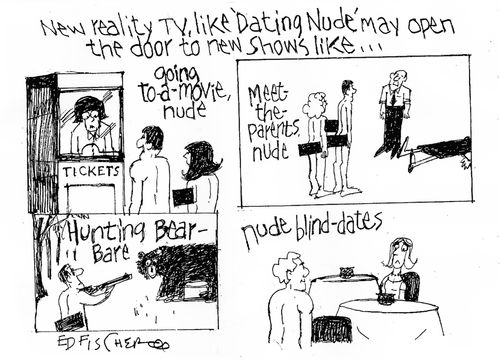 New reality TV, like 'Dating Nude' may open
the door to new shows like...
going
to-a-movie,
nude
TICKETS
Meet-
the-
parents,
nude
Hunting Bear-
Bare
nude blind-dates
ED FISCHER